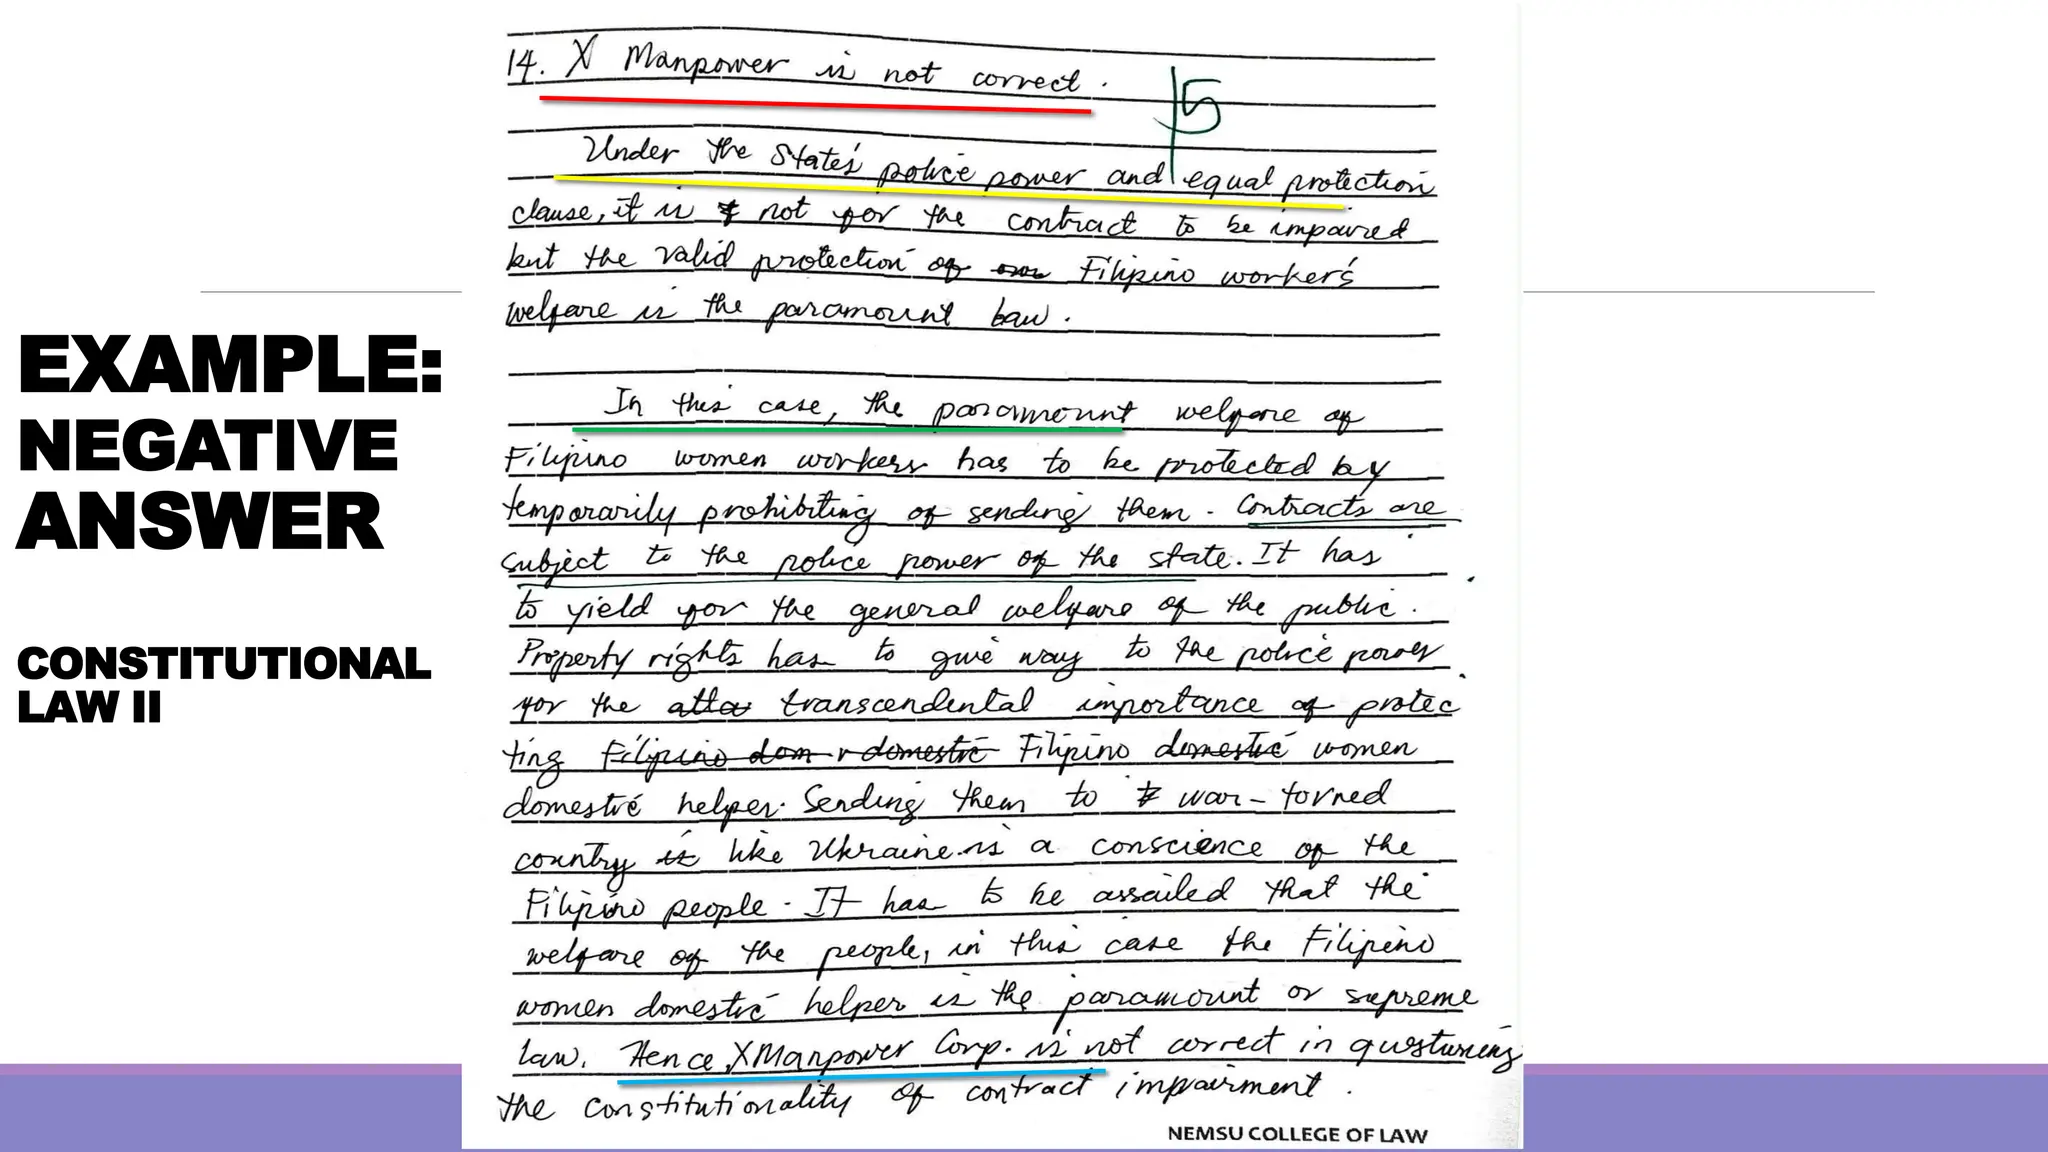 EXAMPLE:
NEGATIVE
ANSWER
CONSTITUTIONAL
LAW II
14. X Manpower is not correct.
5
Under the State's police power and equal protection
clause, it is not for the contract to be impaired
but the valid protection of Filipino worker's
welfare is the paramount law.
In this case, the paramount welfare of
Filipino women workers has to be protected by
temporarily prohibiting of sending them. Contracts are
subject to the police power of the state. It has
to yield for the general welfare of the public.
Property rights has to give way to the police power
for the transcendental importance of protec
ting Filipino dom r domestic Filipino domestic women
domestic helper. Sending them to war-torned
country is like Ukraine is a conscience of the
Filipino people. It has to be assailed that the
welfare of the people, in this case the Filipino
women domestic helper is the paramount or supreme
law. Hence, X Manpower Corp. is not correct in questioning
the constitutionality of contract impairment.
NEMSU COLLEGE OF LAW